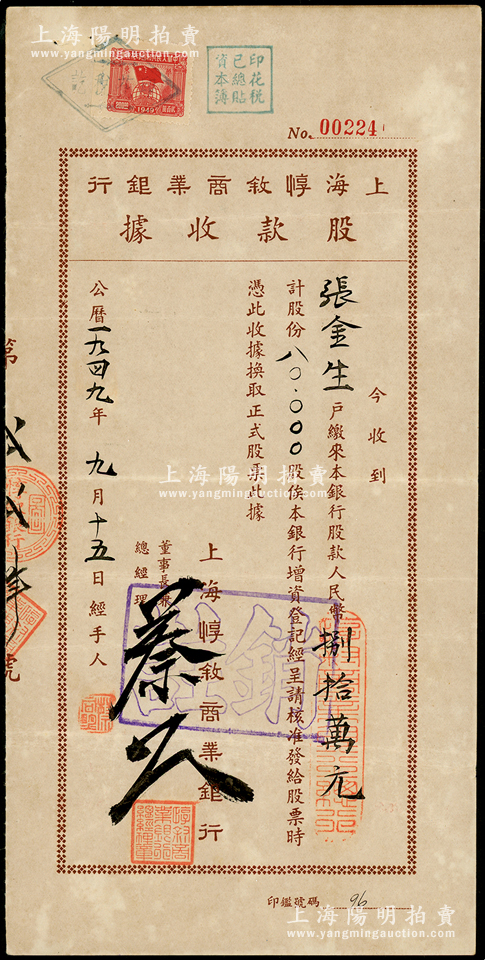 上海陽明拍賣
www.yangmingauction.com
1949
印花税
已總貼
資本簿
No. 00224
上海惇敘商業銀行
股款收據
今收到
張金生戶繳來本銀行股款人民幣捌拾萬元
計股份八〇.〇〇〇股俟本銀行增資登記經呈請核准發給股票時
憑此收據換取正式股票此據
上海惇敘商業銀行
董事長兼
總經理
註銷
公曆一九四九年九月十五日經手人
第
號
上海陽明拍賣
www.yangmingauction.com
印鑑號碼 96
上海陽明拍賣
www.yangmingauction.com